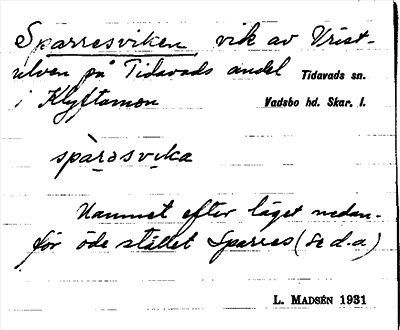 Sparresviken, vik av Vrist-
ulven på Tidavads andel Tidavads sn.
i Klyftamon Vadsbo hd. Skar. l.
spàrəsvika
Namnet efter läget nedan-
för öde stället Sparres (se d.a)
L. MADSÉN 1931